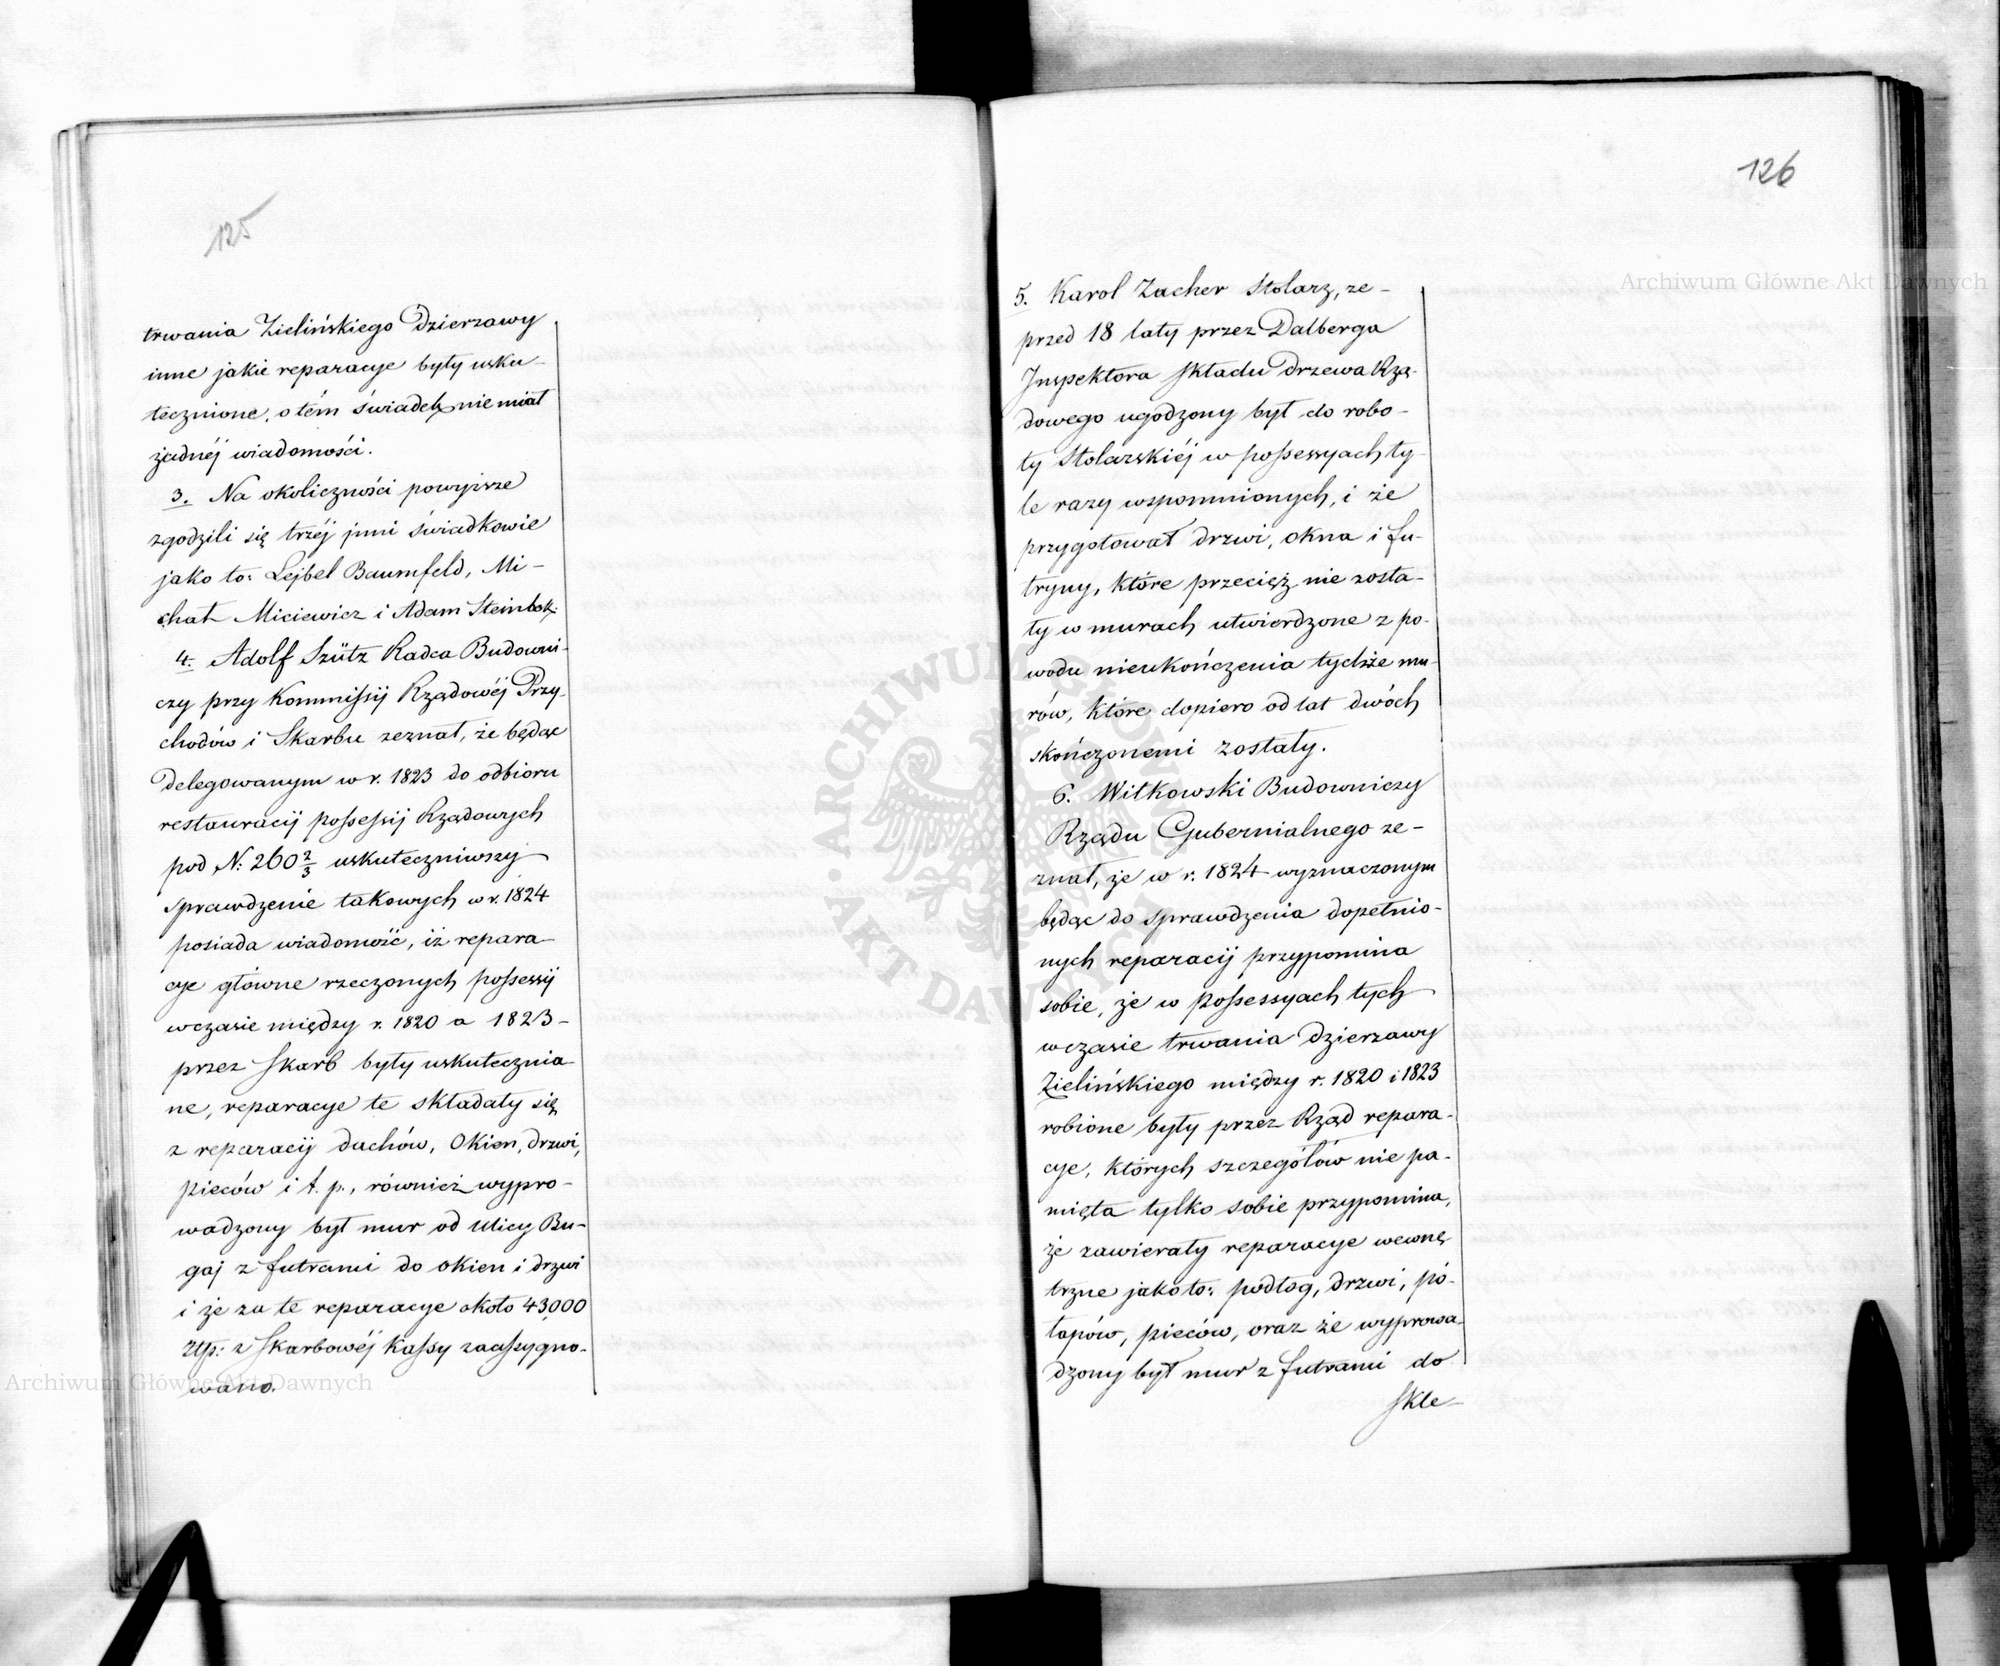 125
trwania Zielińskiego Dzierzawy
inne jakie reparacye były usku-
tecznione, o tém świadek nie miał
żadnéj wiadomości.
3. Na okoliczności powyższe
zgodzili się trzéj inni świadkowie
jako to: Lejbel Baumfeld, Mi-
chał Miciewicz i Adam Steinbok.
4. Adolf Szütz Radca Budowni-
czy przy Kommissyi Rządowéj Przy-
chodów i Skarbu zeznał, że będąc
Delegowanym w r. 1823 do odbioru
restauracij possessij Rządowych
pod N: 260 2/3 uskuteczniwszy
sprawdzenie takowych w r. 1824
posiada wiadomość, iż repara-
cye główne rzeczonych possessij
wczasie między r. 1820 a 1823-
przez Skarb były uskutecznia-
ne, reparacye te składały się
z reparacij dachów, Okien, drzwi,
pieców i t. p., również wypro-
wadzony był mur od ulicy Bu-
gaj z futrami do okien i drzwi
i że za te reparacye około 43,000
złp: z Skarbowéj Kassy zaassygno-
wano.
126
5. Karol Zacher Stolarz, ze-
przed 18 laty przez Dalberga
Inspektora składu Drzewa Rzą-
dowego ugodzony był do robo-
ty Stolarskiéj w possessyach ty-
le razy wspomnionych, i że
przygotował drzwi, okna i fu-
tryny, które przecięż nie zosta-
ły w murach utwierdzone z po-
wodu nieukończenia tychże mu-
rów, które dopiero od lat dwóch
skończonemi zostały.
6. Witkowski Budowniczy
Rządu Gubernialnego ze-
znał, że w r. 1824 wyznaczonym
będąc do sprawdzenia dopełnio-
nych reparacij przypomina
sobie, że w possessyach tych
wczasie trwania Dzierzawy
Zielińskiego między r. 1820 i 1823
robione były przez Rząd repara-
cye, których szczegółów nie pa-
mięta tylko sobie przypomina,
że zawierały reparacye wewnę-
trzne jako to: podłog, drzwi, pó-
łapów, pieców, oraz że wyprowa-
dzony był mur z futrami do
skle-
Archiwum Główne Akt Dawnych
Archiwum Główne Akt Dawnych
ARCHIWUM GŁÓWNE · AKT DAWNYCH ·